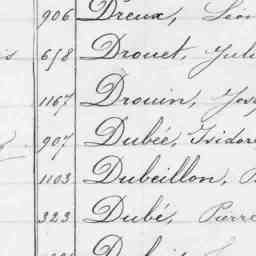 906 Dreux, Léon
658 Drouet, Juli
1167 Drouin, Jos
907 Dubée, Isidore
1103 Dubeillon,
323 Dubé, Pierre